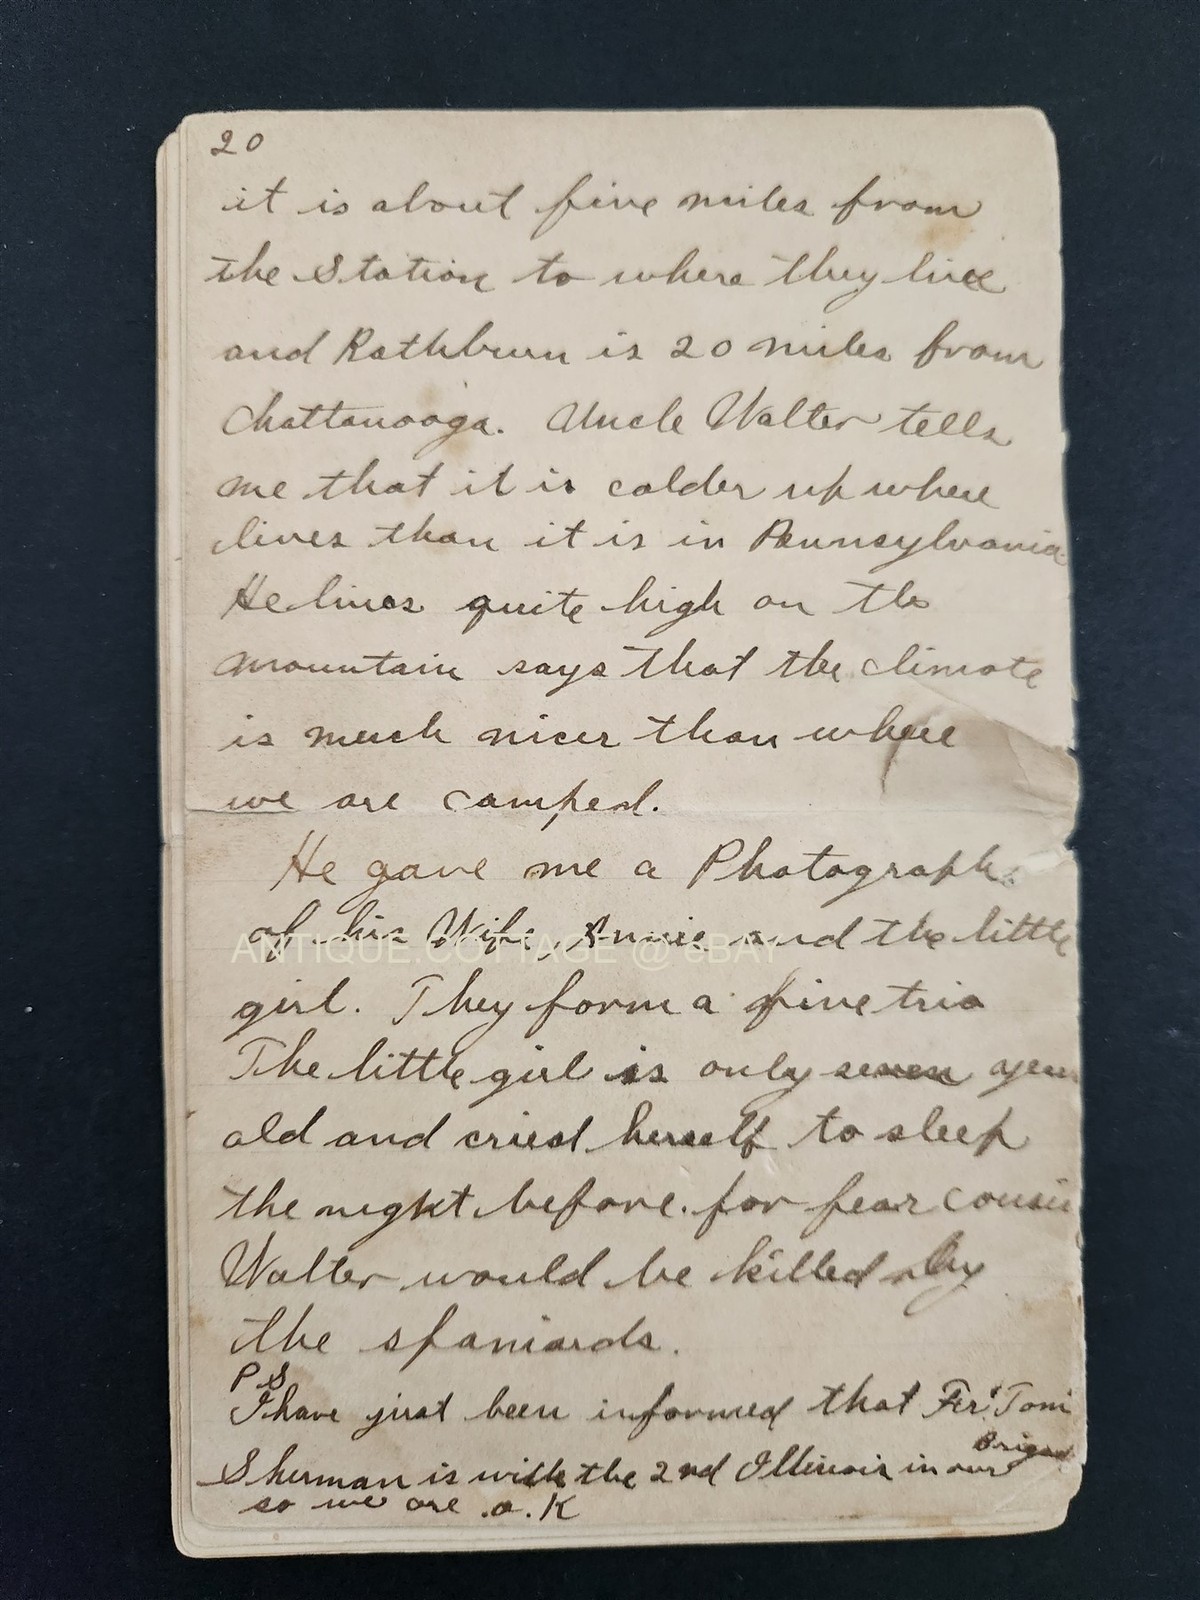 20
it is about five miles from
the Station to where they live
and Rathburn is 20 miles from
Chattanooga. Uncle Walter tells
me that it is colder up where
lives than it is in Pennsylvania
He lives quite high on the
mountain says that the climate
is much nicer than where
we are camped.
He gave me a Photograph
of his Wife, Annie and the little
ANTIQUE.COTTAGE @ eBAY
girl. They form a fine trio
The little girl is only seven
old and cried herself to sleep
the night before. for fear cousin
Walter would be killed by
the spaniards.
P S
I have just been informed that Fr. Tom
Brigad
Sherman is with the 2nd Illinois in our
so we are .o.K